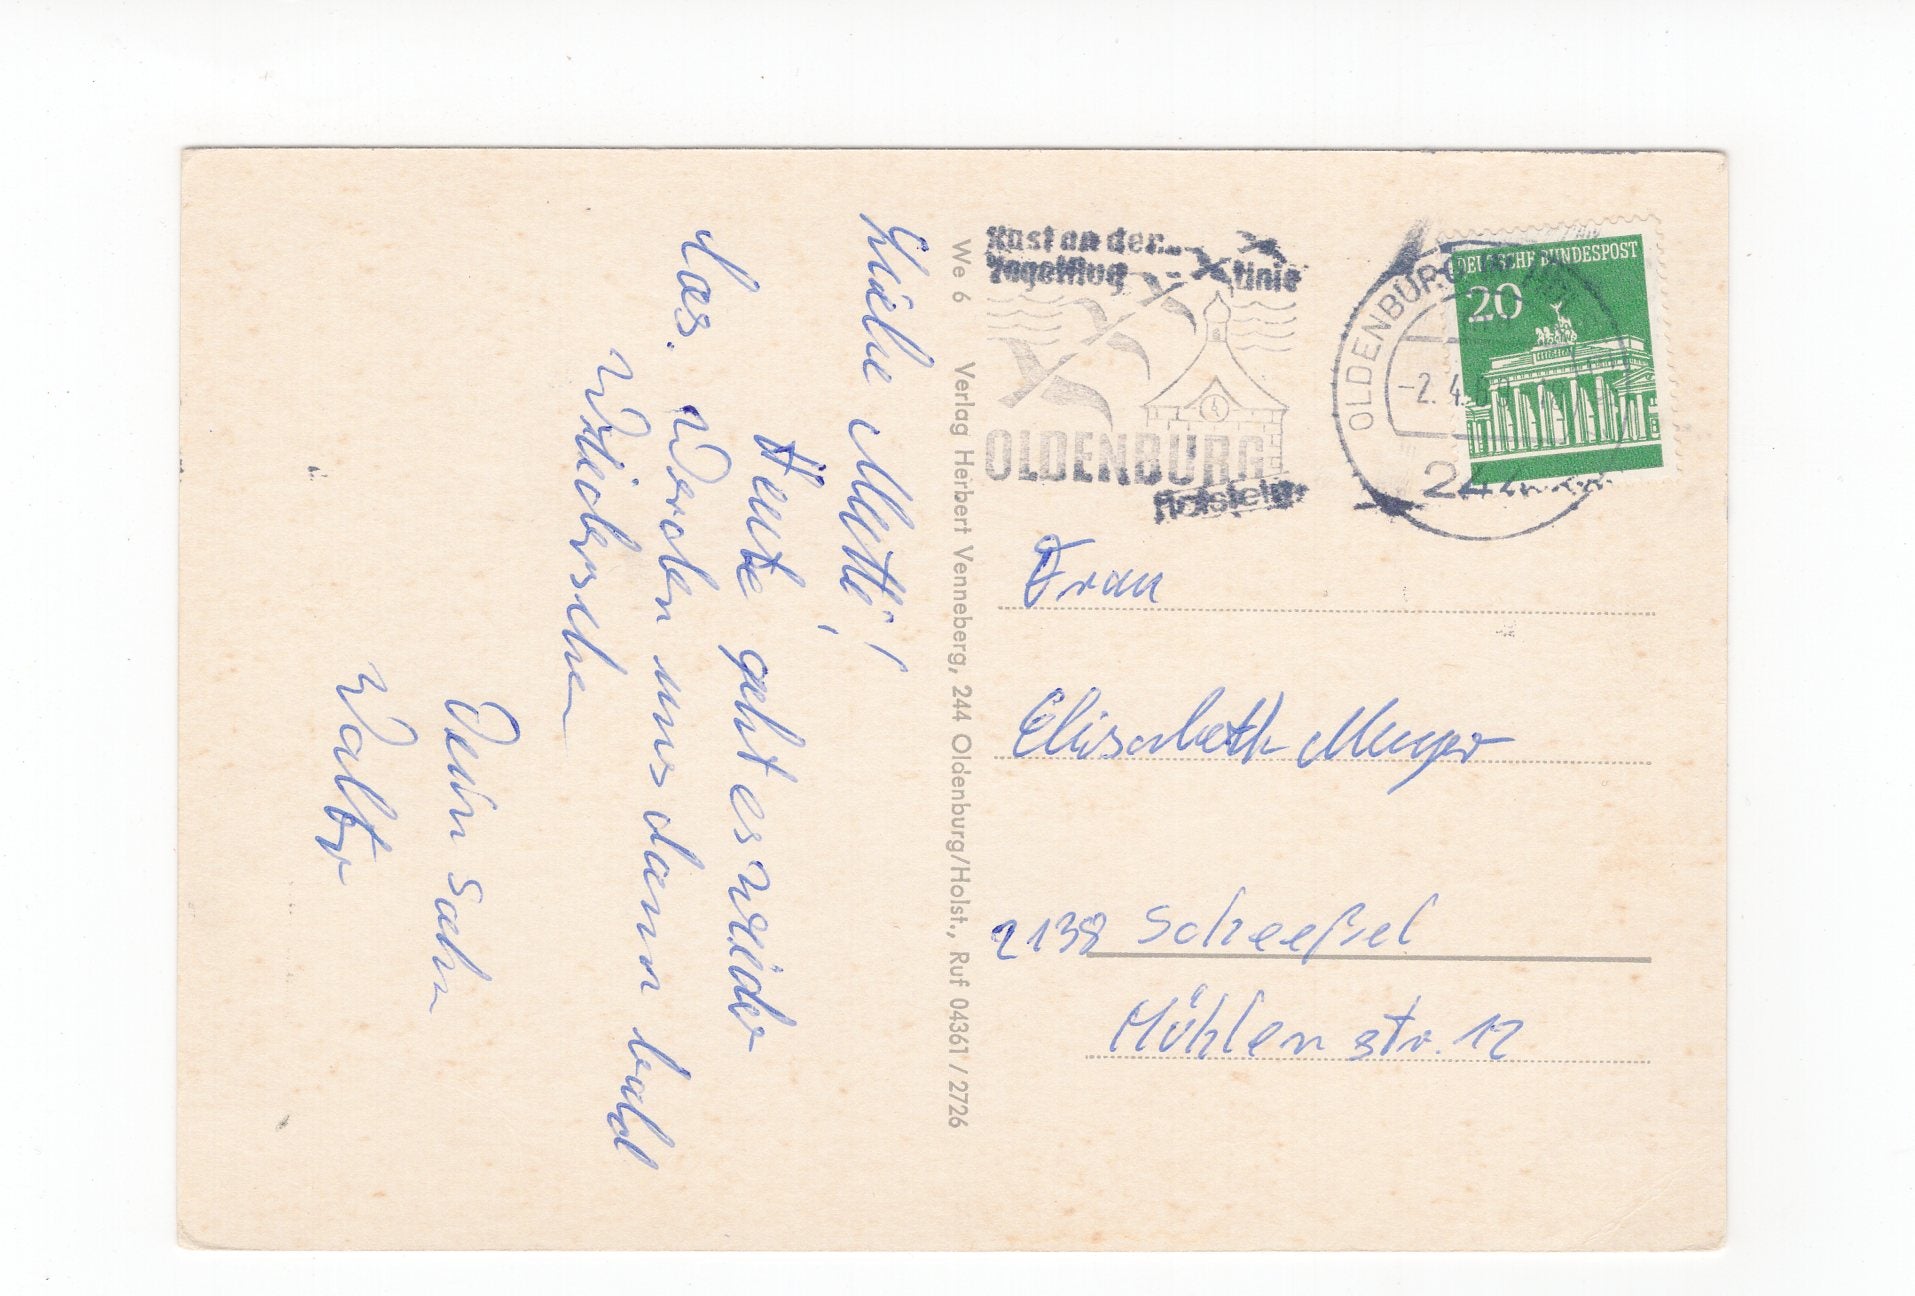 Liebe Mutti!
Heute geht es wieder
los. Werden uns dann bald
Wiedersehen
Dein Sohn
Walter
We 6 Verlag Herbert Venneberg, 244 Oldenburg/Holst., Ruf 04361 / 2726
Rast an der...
Vogelfluglinie
OLDENBURG
Holstein
OLDENBURG
-2.4.
244
DEUTSCHE BUNDESPOST
20
Frau
Elisabeth Meyer
2138 Scheeßel
Mühlenstr. 12